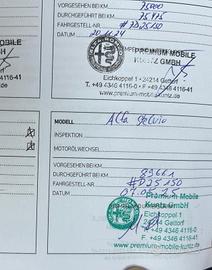 VORGESEHEN BEI KM 75000
DURCHGEFÜHRT BEI KM 75475
FAHRGESTELL-NR. #7D25150
DATUM 20.11.24
PREMIUM MOBILE
KUNTZ GMBH
Eichkoppel 1 • 24214 Gettorf
T. +49 4346 4116-0 • F +49 4346 4116-41
www.premium-mobile-kuntz.de
MOBILE
GMBH
Gettorf
4116-41
MODELL Alfa Stelvio
INSPEKTION
MOTORÖLWECHSEL
VORGESEHEN BEI KM
DURCHGEFÜHRT BEI KM 89661
FAHRGESTELL-NR. #7D25150
DATUM
Premium Mobile
Kuntz GmbH
Eichkoppel 1
24214 Gettorf
+49 4346 4116-0
F. +49 4346 4116-41
www.premium-mobile-kuntz.de